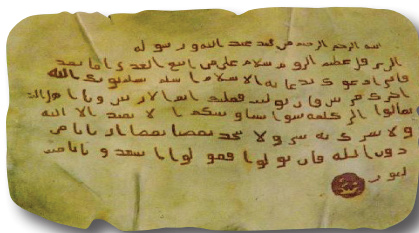 بسم الله الرحمن الرحيم من محمد عبد الله ورسوله
الى هرقل عظيم الروم سلام على من اتبع الهدى اما بعد
فانى ادعوك بدعاية الاسلام اسلم تسلم يوتك الله
اجرك مرتين فان توليت فعليك اثم الاريسيين ويا اهل الكتاب
تعالوا الى كلمة سوا بيننا وبينكم ا لا نعبد الا الله
ولا نشرك به شيئا ولا يتخذ بعضنا بعضا اربابا من
دون الله فان تولوا فقولوا اشهدوا بانا مسلـ
ـمون